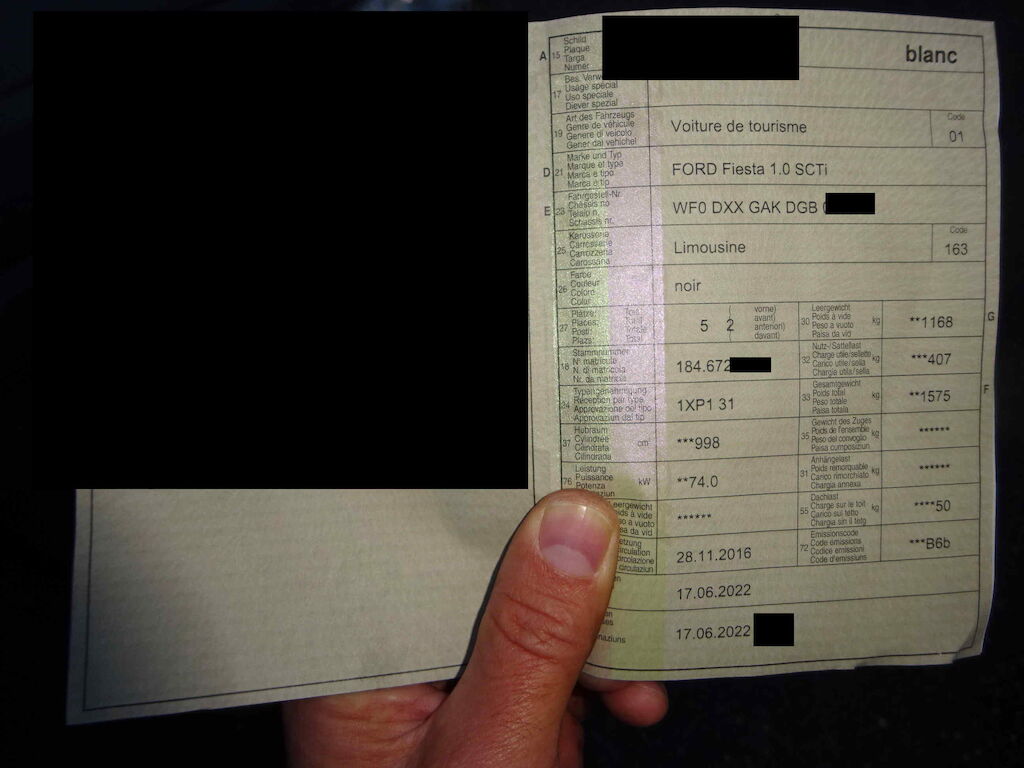 A 15 Schild
Plaque
Targa
Numer
blanc
17 Bes. Verw
Usage spécial
Uso speciale
Diever spezial
19 Art des Fahrzeugs
Genre de véhicule
Genere di veicolo
Gener dal vehichel
Voiture de tourisme
Code
01
D 21 Marke und Typ
Marque et type
Marca e tipo
Marca e tip
FORD Fiesta 1.0 SCTi
E 23 Fahrgestell-Nr.
Châssis no
Telaio n.
Schassis nr.
WF0 DXX GAK DGB
25 Karosserie
Carrosserie
Carrozzeria
Carossaria
Limousine
Code
163
26 Farbe
Couleur
Colore
Colur
noir
27 Plätze: Total
Places: Total
Posti: Totale
Plazs: Total
5 2
( vorne)
avant)
anteriori)
davant)
30 Leergewicht
Poids à vide
Peso a vuoto
Paisa da vid
kg
**1168
G
18 Stammnummer
N° matricule
N. di matricola
Nr. da matricla
184.672
32 Nutz-/Sattellast
Charge utile/sellette
Carico utile/sella
Chargia utila/sella
kg
***407
24 Typengenehmigung
Réception par type
Approvazione del tipo
Approvaziun dal tip
1XP1 31
33 Gesamtgewicht
Poids total
Peso totale
Paisa totala
kg
**1575
F
37 Hubraum
Cylindrée
Cilindrata
Cilindrada
cm
***998
35 Gewicht des Zuges
Poids de l'ensemble
Peso del convoglio
Paisa cumposiziun
kg
******
76 Leistung
Puissance
Potenza
aziun
kW
**74.0
31 Anhängelast
Poids remorquable
Carico rimorchiato
Chargia annexa
kg
******
eergewicht
oids à vide
so a vuoto
sa da vid
******
55 Dachlast
Charge sur le toit
Carico sul tetto
Chargia sin il tetg
kg
****50
etzung
irculation
ircolazione
circulaziun
28.11.2016
72 Emissionscode
Code émissions
Codice emissioni
Code d'emissiuns
***B6b
en
17.06.2022
en
ses
naziuns
17.06.2022